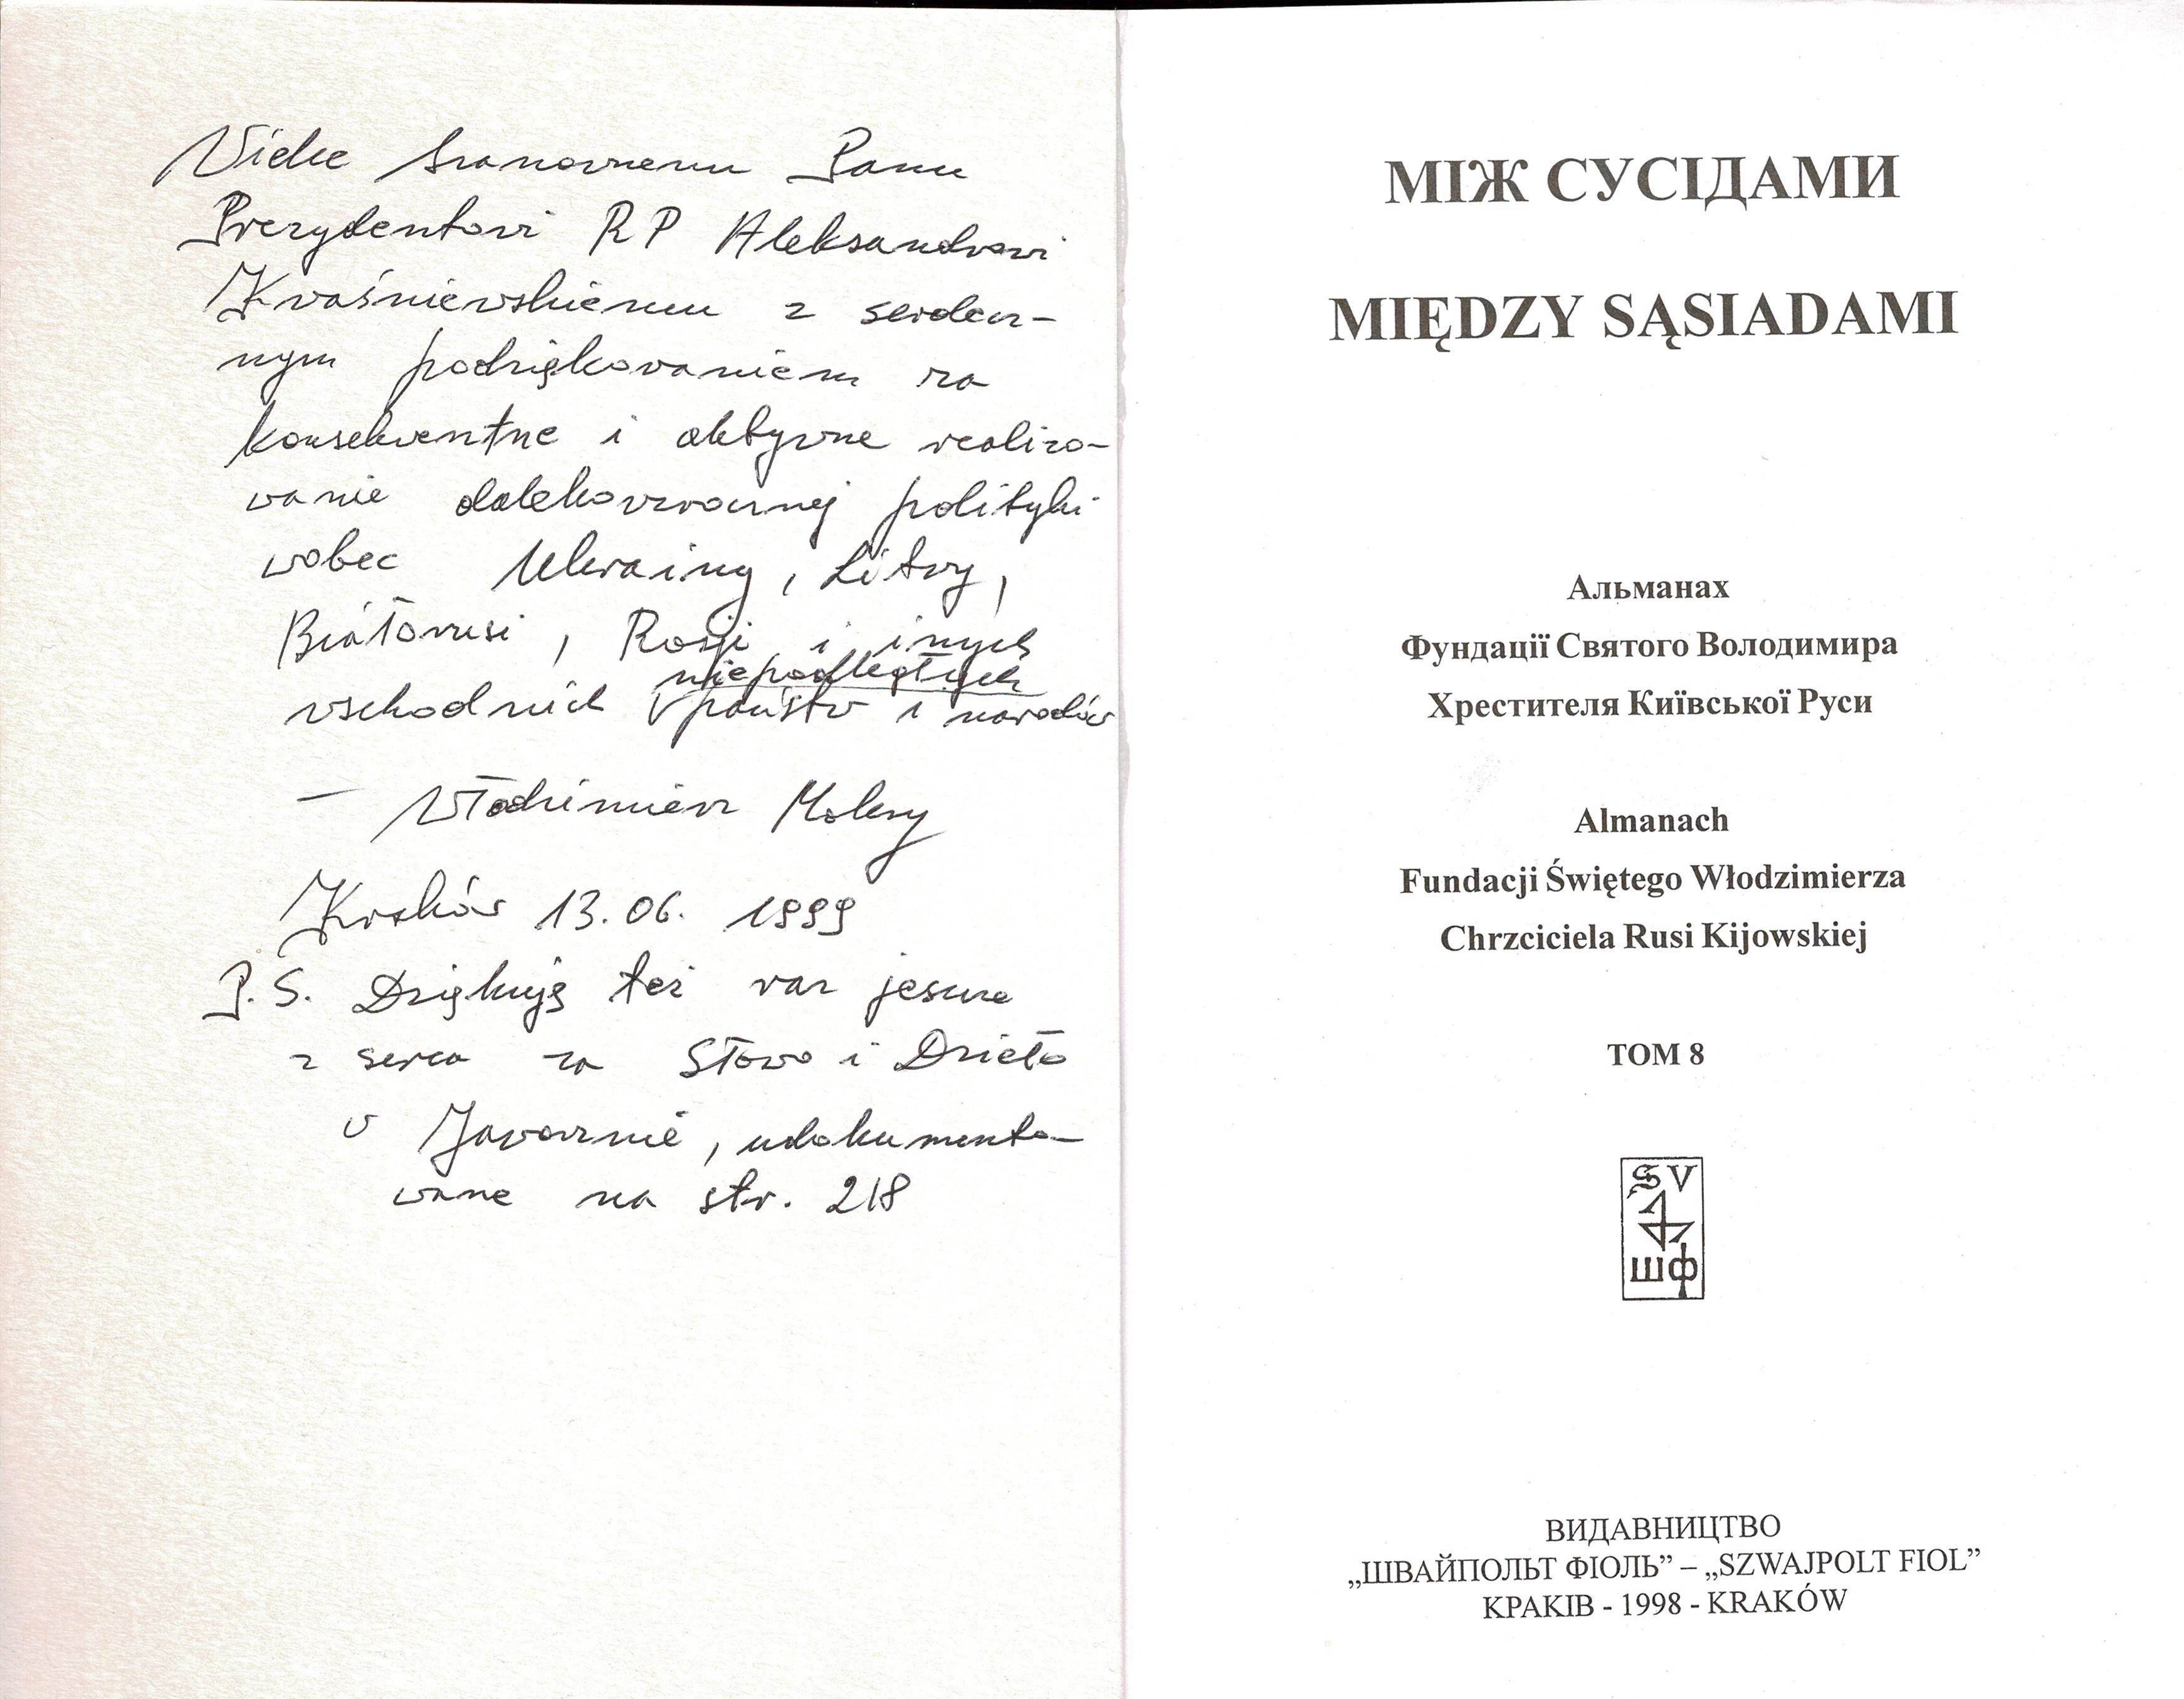 Wielce Szanownemu Panu
Prezydentowi RP Aleksandrowi
Kwaśniewskiemu z serdecz-
nym podziękowaniem za
konsekwentne i aktywne realizo-
wanie dalekowzrocznej polityki
wobec Ukrainy, Litwy,
Białorusi, Rosji i inych
niepodległych
wschodnich państw i narodów
– Włodzimierz Mokry
Kraków 13.06.1999
P.S. Dziękuję też raz jeszcze
z serca za Słowo i Dzieło
w Jaworznie, udokumento-
wane na str. 218
МІЖ СУСІДАМИ
MIĘDZY SĄSIADAMI
Альманах
Фундації Святого Володимира
Хрестителя Київської Руси
Almanach
Fundacji Świętego Włodzimierza
Chrzciciela Rusi Kijowskiej
ТОМ 8
SV
ШФ
ВИДАВНИЦТВО
„ШВАЙПОЛЬТ ФІОЛЬ” – „SZWAJPOLT FIOL”
КРАКІВ - 1998 - KRAKÓW